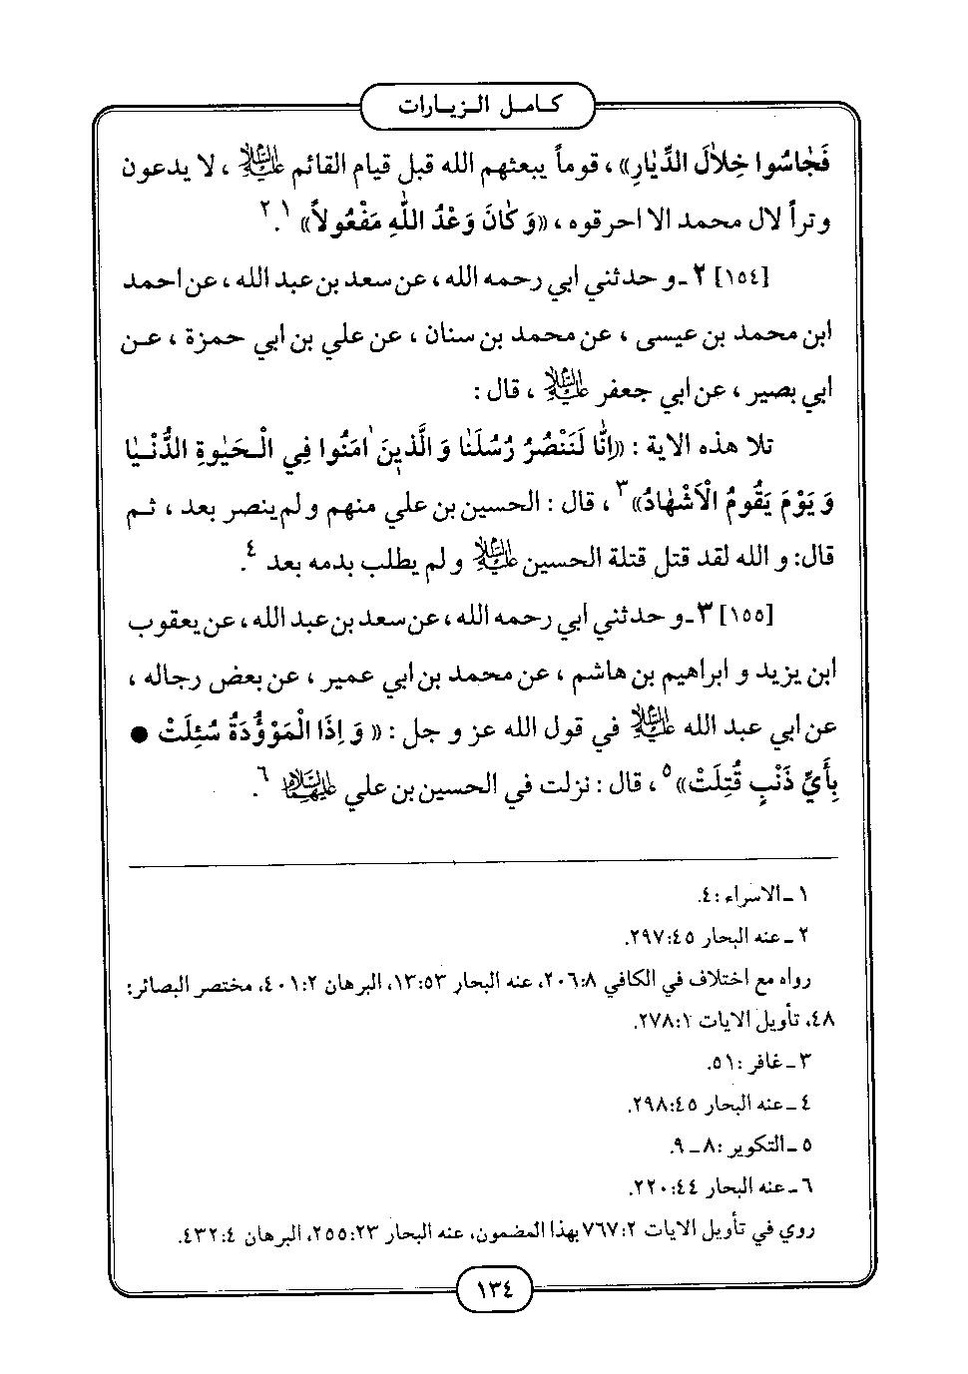 كامل الزيارات
فَجٰاسُوا خِلٰالَ الدِّيٰارِ» ، قوماً يبعثهم الله قبل قيام القائم عليه السلام ، لا يدعون
وتراً لال محمد الا احرقوه ، «وَ كٰانَ وَعْدُ اللّٰهِ مَفْعُولاً» ١.٢
[١٥٤] ٢ ـ و حدثني ابي رحمه الله ، عن سعد بن عبد الله ، عن احمد
ابن محمد بن عيسى ، عن محمد بن سنان ، عن علي بن ابي حمزة ، عـن
ابي بصير ، عن ابي جعفر عليه السلام ، قال :
تلا هذه الاية : «اِنّٰا لَنَنْصُرُ رُسُلَنٰا وَ الَّذينَ اٰمَنُوا فِي الْـحَيٰوةِ الدُّنْـيٰا
وَ يَوْمَ يَقُومُ الْاَشْهٰادُ» ٣ ، قال : الحسين بن علي منهم و لم ينصر بعد ، ثـم
قال: و الله لقد قتل قتلة الحسين عليه السلام و لم يطلب بدمه بعد ٤.
[١٥٥] ٣ ـ و حدثني ابي رحمه الله ، عن سعد بن عبد الله ، عن يعقوب
ابن يزيد و ابراهيم بن هاشم ، عن محمد بن ابي عمير ، عن بعض رجاله ،
عن ابي عبد الله عليه السلام في قول الله عز و جل : « وَ اِذَا الْمَوْؤُدَةُ سُئِلَتْ ●
بِأَيِّ ذَنْبٍ قُتِلَتْ» ٥ ، قال : نزلت في الحسين بن علي عليهما السلام ٦.
١ ـ الاسراء :٤.
٢ ـ عنه البحار ٢٩٧:٤٥.
رواه مع اختلاف في الكافي ٢٠٦:٨، عنه البحار ١٣:٥٣، البرهان ٤٠١:٢، مختصر البصائر:
٤٨، تأويل الايات ٢٧٨:١.
٣ ـ غافر :٥١.
٤ ـ عنه البحار ٢٩٨:٤٥.
٥ ـ التكوير :٨ ـ ٩.
٦ ـ عنه البحار ٢٢٠:٤٤.
روي في تأويل الايات ٧٦٧:٢ بهذا المضمون، عنه البحار ٢٥٥:٢٣، البرهان ٤٣٢:٤.
١٣٤